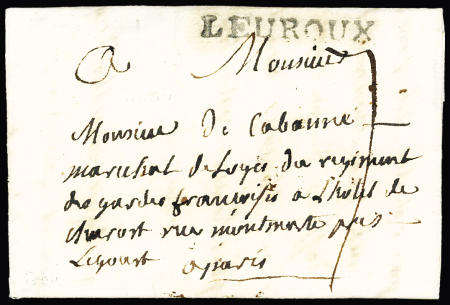 LEUROUX
A Monsieur
Monsieur De Cabanne
marechal de Loges du regiment
des gardes francoises a Lhotel de
rue montmarte pres
Legout aparis